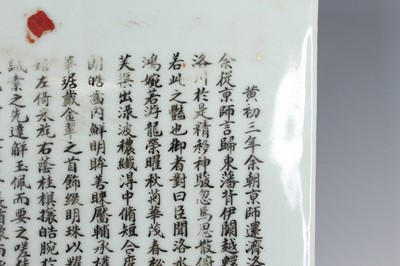 黃初三年余朝京師還濟洛
余從京師言歸東藩背伊闕越轘
洛川於是精移神駭忽焉思散俯
若此之豔也御者對曰臣聞洛水
鴻婉若游龍榮曜秋菊華茂春松
芙蕖出淥波穠纖得中脩短合度
朗皓齒內鮮明眸善睞靨輔承權
華琚戴金翠之首飾綴明珠以耀
左倚采旄右蔭桂旗攘皓腕於
誠素之先達解玉佩而要之嗟